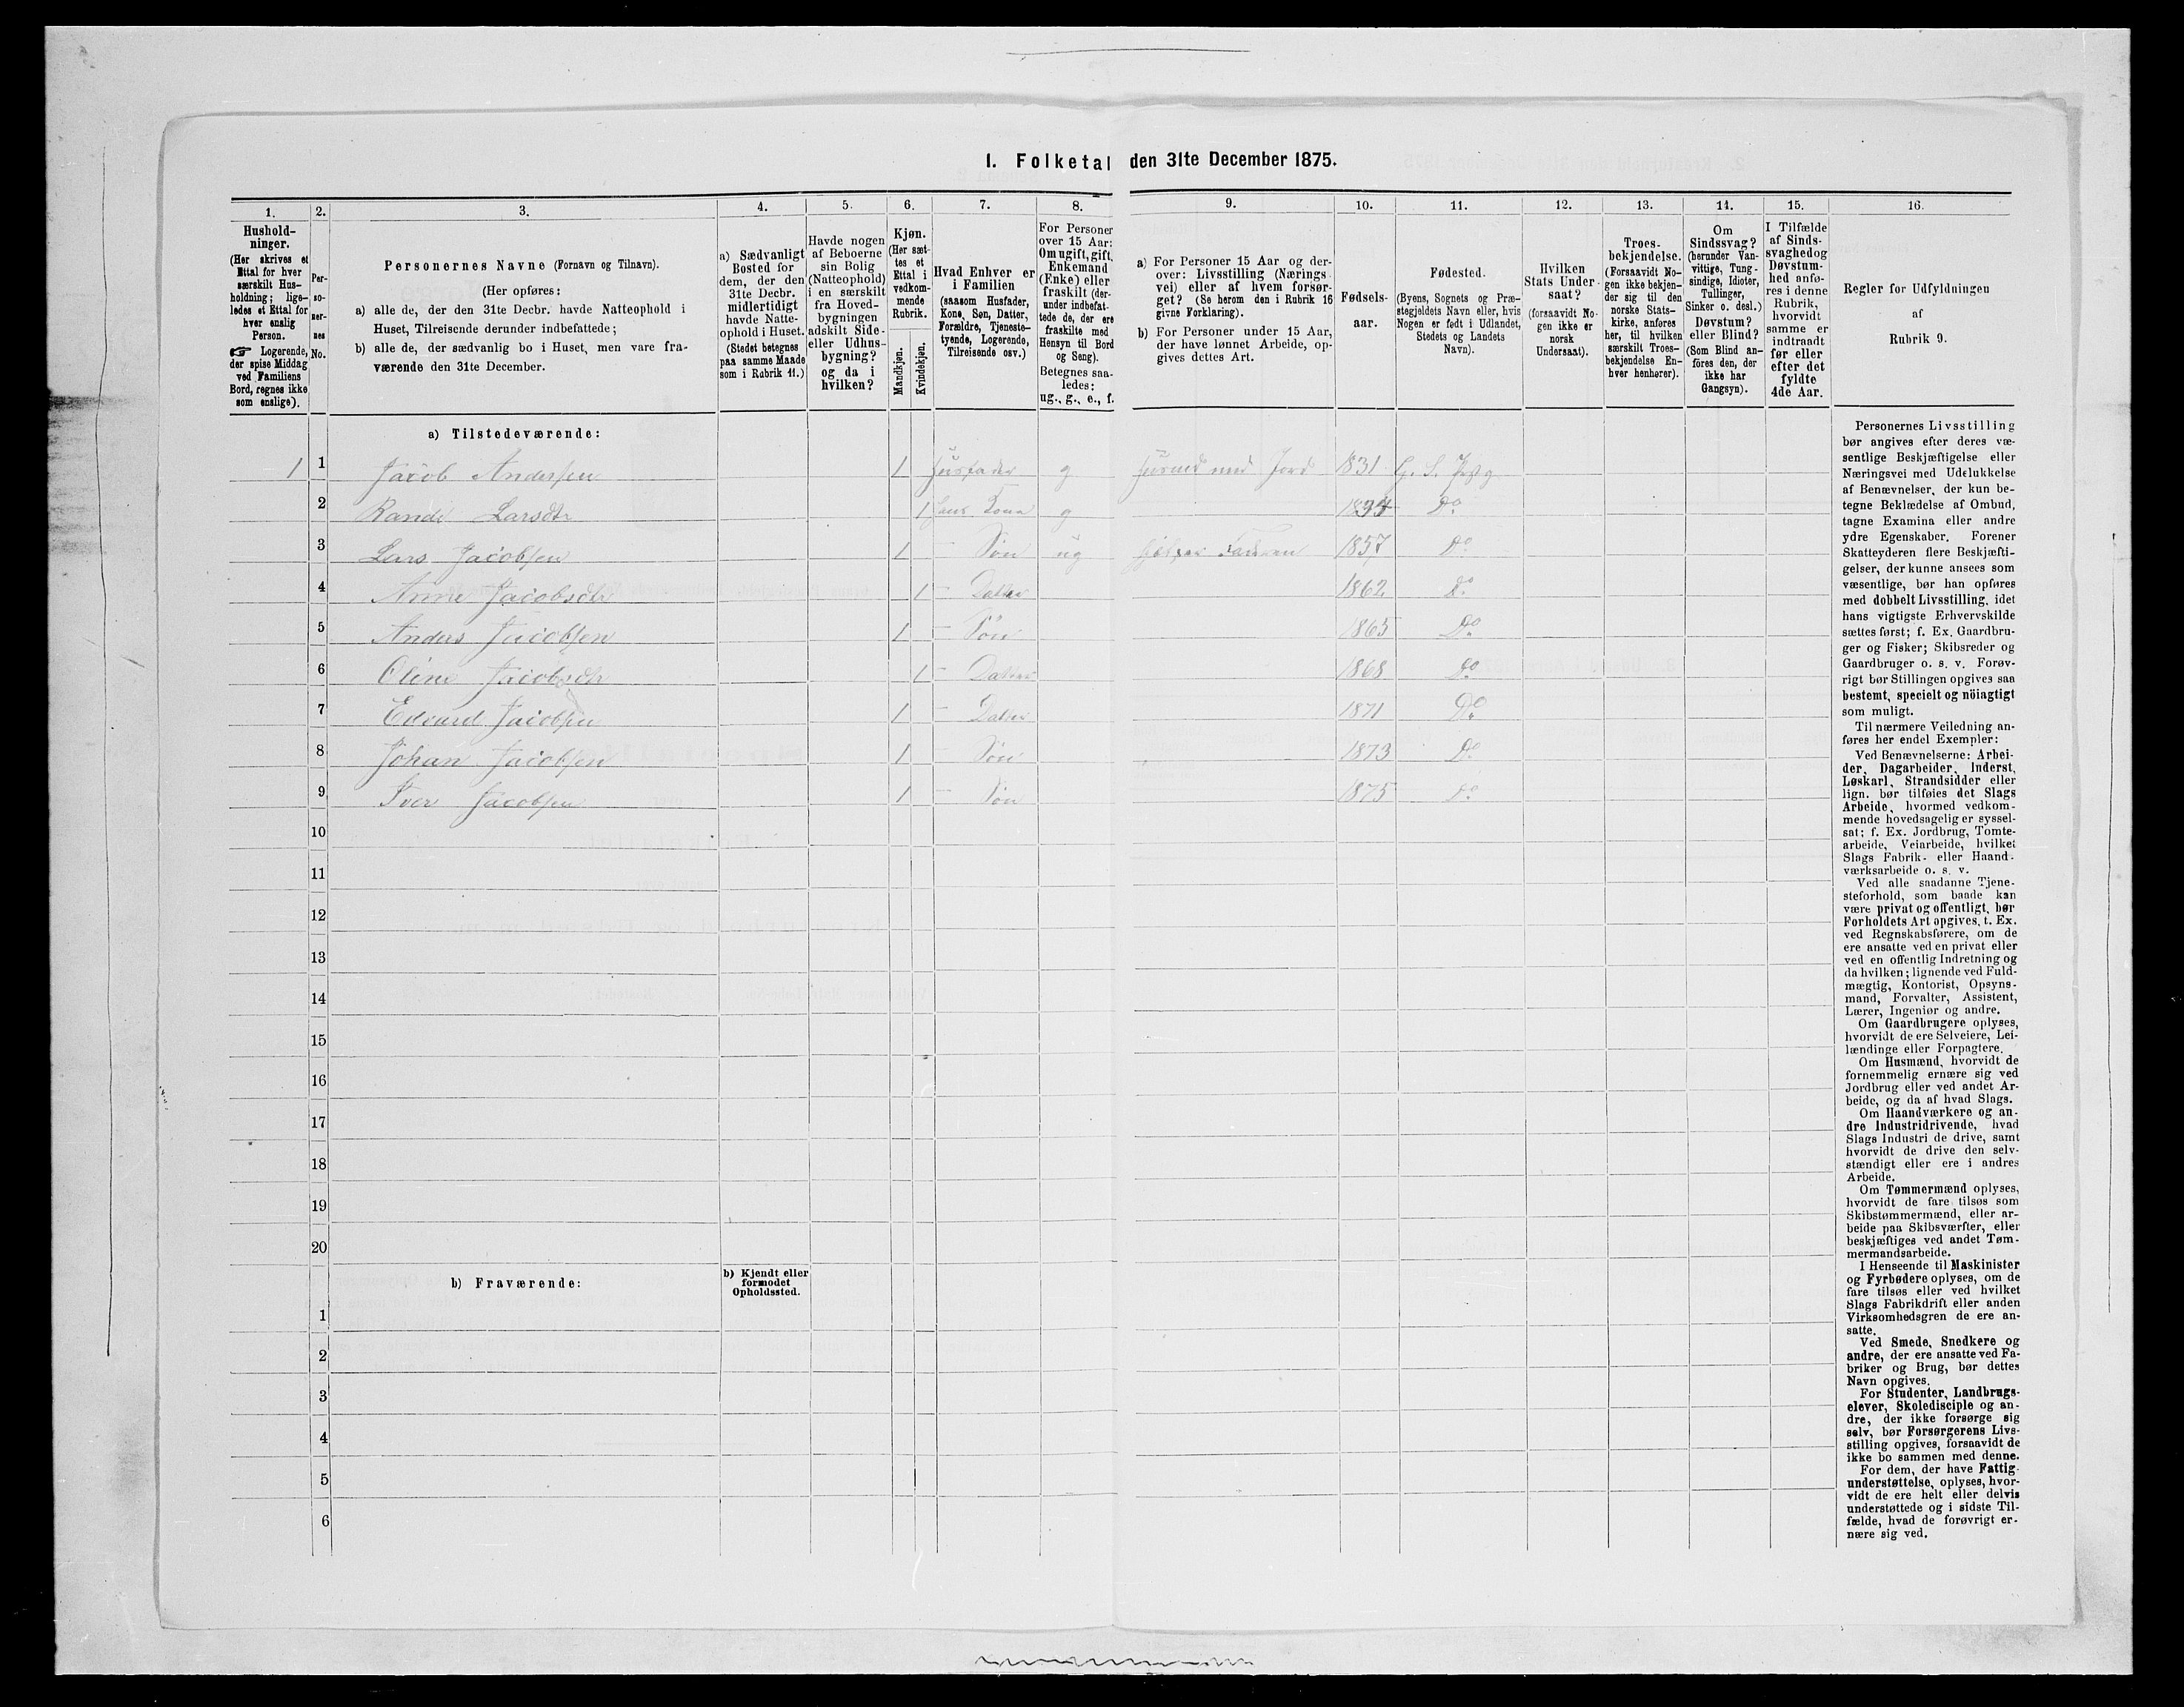 1. Folketal den 31te December 1875.
1. 2. 3. 4. 5. 6. 7. 8. 9. 10. 11. 12. 13. 14. 15. 16.
Hushold-
ninger.
(Her skrives et
Ettal for hver
særskilt Hus-
holdning; lige-
ledes et Ettal for
hver enslig
Person.
☞ Logerende,
der spise Middag
ved Familiens
Bord, regnes ikke
som enslige).
Per-
so-
ner-
nes
No.
Personernes Navne (Fornavn og Tilnavn).
(Her opføres:
a) alle de, der den 31te Decbr. havde Natteophold i
Huset, Tilreisende derunder indbefattede;
b) alle de, der sædvanlig bo i Huset, men vare fra-
værende den 31te December.
a) Sædvanligt
Bosted for
dem, der den
31te Decbr.
midlertidigt
havde Natte-
ophold i Huset.
(Stedet betegnes
paa samme Maade
som i Rubrik 11.)
Havde nogen
af Beboerne
sin Bolig
(Natteophold)
i en særskilt
fra Hoved-
bygningen
adskilt Side-
eller Udhus-
bygning?
og da i
hvilken?
Kjøn.
(Her sæt-
tes et
Ettal i
vedkom-
mende
Rubrik.
Mandkjøn.
Kvindekjøn.
Hvad Enhver er
i Familien
(saasom Husfader,
Kone, Søn, Datter,
Forældre, Tjeneste-
tyende, Logerende,
Tilreisende osv.)
For Personer
over 15 Aar:
Om ugift, gift,
Enkemand
(Enke) eller
fraskilt (der-
under indbefat-
tede de, der ere
fraskilte med
Hensyn til Bord
og Seng).
Betegnes saa-
ledes:
ug., g., e., f.
a) For Personer 15 Aar og der-
over: Livsstilling (Nærings-
vei) eller af hvem forsør-
get? (Se herom den i Rubrik 16
givne Forklaring).
b) For Personer under 15 Aar,
der have lønnet Arbeide, op-
gives dettes Art.
Fødsels-
aar.
Fødested.
(Byens, Sognets og Præ-
stegjeldets Navn eller, hvis
Nogen er født i Udlandet,
Stedets og Landets
Navn).
Hvilken
Stats Under-
saat?
(forsaavidt No-
gen ikke er
norsk
Undersaat).
Troes-
bekjendelse.
(Forsaavidt No-
gen ikke bekjen-
der sig til den
norske Stats-
kirke, anføres
her, til hvilken
særskilt Troes-
bekjendelse En-
hver henhører).
Om
Sindssvag?
(herunder Van-
vittige, Tung-
sindige, Idioter,
Tullinger,
Sinker o. desl.)
Døvstum?
eller Blind?
(Som Blind an-
føres den, der
ikke har
Gangsyn).
I Tilfælde
af Sinds-
svaghed og
Døvstum-
hed anfø-
res i denne
Rubrik,
hvorvidt
samme er
indtraadt
før eller
efter det
fyldte
4de Aar.
Regler for Udfyldningen
af
Rubrik 9.
a) Tilstedeværende:
1 1 Jacob Andersen 1 Husfader g Husmd med Jord 1831
2 Rande Larsdtr 1 Kona g 1834 Do
3 Lars Jacobsen 1 – Søn ug hjelper Faderen 1857 Do
4 Anne Jacobsdtr 1 – Datter 1862 Do
5 Anders Jacobsen 1 – Søn 1865 Do
6 Oline Jacobsdtr 1 – Datter 1868 Do
7 Edvard Jacobsen 1 – Datter 1871 Do
8 Johan Jacobsen 1 – Søn 1873 Do
9 Iver Jacobsen 1 – Søn 1875 Do
10
11
12
13
14
15
16
17
18
19
20
b) Fraværende:
b) Kjendt eller
formodet
Opholdssted.
1
2
3
4
5
6
Personernes Livsstilling
bør angives efter deres væ-
sentlige Beskjæftigelse eller
Næringsvei med Udelukkelse
af Benævnelser, der kun be-
tegne Beklædelse af Ombud,
tagne Examina eller andre
ydre Egenskaber. Forener
Skatteyderen flere Beskjæfti-
gelser, der kunne ansees som
væsentlige, bør han opføres
med dobbelt Livsstilling, idet
hans vigtigste Erhvervskilde
sættes først; f. Ex. Gaardbru-
ger og Fisker; Skibsreder og
Gaardbruger o. s. v. Forøv-
rigt bør Stillingen opgives saa
bestemt, specielt og nöiagtigt
som muligt.
Til nærmere Veiledning an-
føres her endel Exempler:
Ved Benævnelserne: Arbei-
der, Dagarbeider, Inderst,
Løskarl, Strandsidder eller
lign. bør tilføies det Slags
Arbeide, hvormed vedkom-
mende hovedsagelig er syssel-
sat; f. Ex. Jordbrug, Tomte-
arbeide, Veiarbeide, hvilket
Slags Fabrik- eller Haand-
værksarbeide o. s. v.
Ved alle saadanne Tjene-
steforhold, som baade kan
være privat og offentligt, bør
Forholdets Art opgives, t. Ex.
ved Regnskabsførere, om de
ere ansatte ved en privat eller
ved en offentlig Indretning og
da hvilken; lignende ved Fuld-
mægtig, Kontorist, Opsyns-
mand, Forvalter, Assistent,
Lærer, Ingeniør og andre.
Om Gaardbrugere oplyses,
hvorvidt de ere Selveiere, Lei-
lændinge eller Forpagtere.
Om Husmænd, hvorvidt de
fornemmelig ernære sig ved
Jordbrug eller ved andet Ar-
beide, og da af hvad Slags.
Om Haandværkere og an-
dre Industridrivende, hvad
Slags Industri de drive, samt
hvorvidt de drive den selv-
stændigt eller ere i andres
Arbeide.
Om Tømmermænd oplyses,
hvorvidt de fare tilsøs som
Skibstømmermænd, eller ar-
beide paa Skibsværfter, eller
beskjæftiges ved andet Tøm-
mermandsarbeide.
I Henseende til Maskinister
og Fyrbødere oplyses, om de
fare tilsøs eller ved hvilket
Slags Fabrikdrift eller anden
Virksomhedsgren de ere an-
satte.
Ved Smede, Snedkere og
andre, der ere ansatte ved Fa-
briker og Brug, bør dettes
Navn opgives.
For Studenter, Landbrugs-
elever, Skoledisciple og an-
dre, der ikke forsørge sig
selv, bør Forsørgerens Livs-
stilling opgives, forsaavidt de
ikke bo sammen med denne.
For dem, der have Fattig-
understøttelse, oplyses, hvor-
vidt de ere helt eller delvis
understøttede og i sidste Til-
fælde, hvad de forøvrigt er-
nære sig ved.